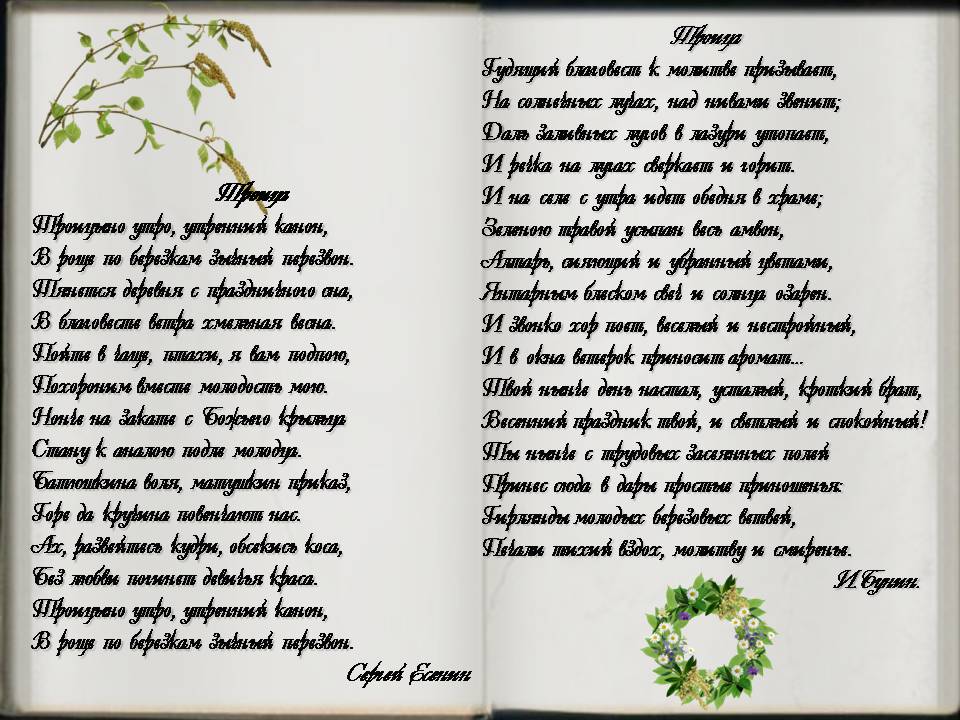 Троица
Троицыно утро, утренний канон,
В роще по березкам зычный перезвон.
Тянется деревня с праздничного сна,
В благовесте ветра хмельная весна.
Пойте в чаще, птахи, я вам подпою,
Похороним вместе молодость мою.
Нонче на закате с Божьего крыльца
Стану к аналою подле молодца.
Батюшкина воля, матушкин приказ,
Горе да кручина повенчают нас.
Ах, развейтесь кудри, обсекись коса,
Без любви погинет девичья краса.
Троицыно утро, утренний канон,
В роще по березкам зычный перезвон.
Сергей Есенин
Троица
Гудящий благовест к молитве призывает,
На солнечных лучах, над нивами звенит;
Даль заливных лугов в лазури утопает,
И речка на лугах сверкает и горит.
И на селе с утра идет обедня в храме;
Зеленою травой усыпан весь амвон,
Алтарь, сияющий и убранный цветами,
Янтарным блеском свеч и солнца озарен.
И звонко хор поет, веселый и нестройный,
И в окна ветерок приносит аромат...
Твой нынче день настал, усталый, кроткий брат,
Весенний праздник твой, и светлый и спокойный!
Ты нынче с трудовых засеянных полей
Принес сюда в дары простые приношенья:
Гирлянды молодых березовых ветвей,
Печали тихий вздох, молитву и смиренье.
И.Бунин.